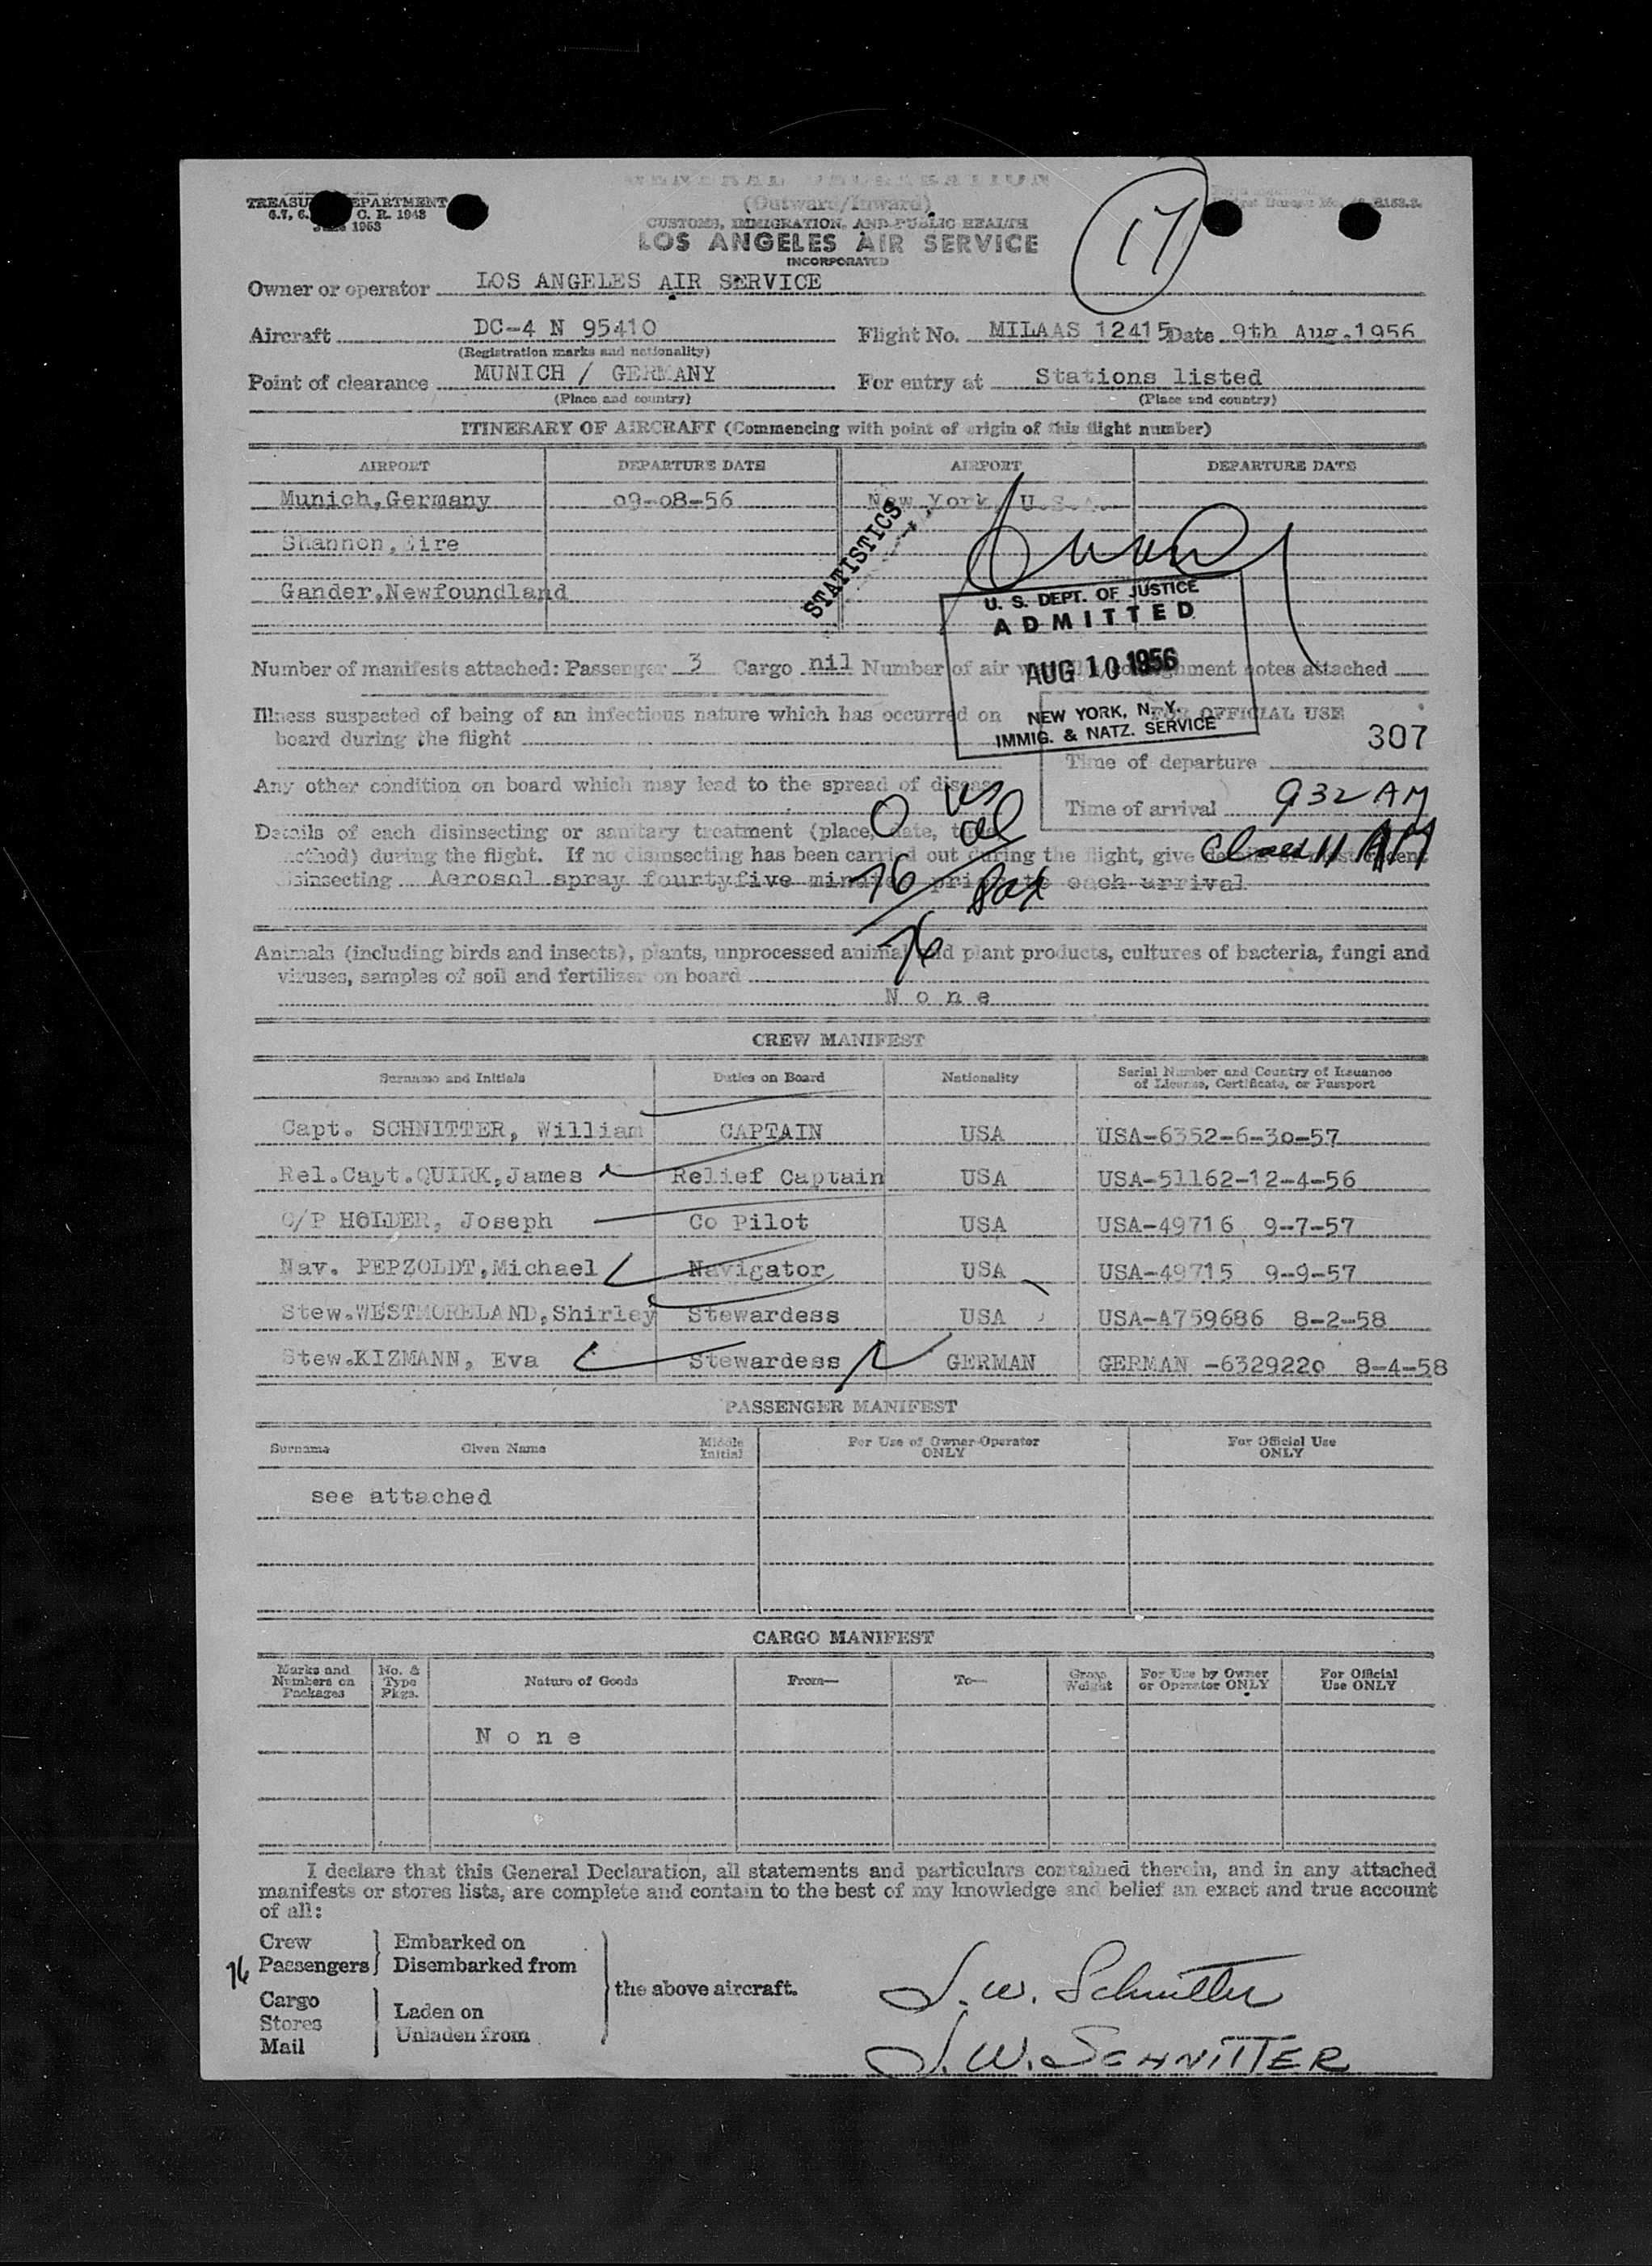 TREASU EPARTMENT
C. R. 1943
1953
(Outward/Inward)
CUSTOMS, IMMIGRATION, AND PUBLIC HEALTH
LOS ANGELES AIR SERVICE
INCORPORATED
17
Owner or operator LOS ANGELES AIR SERVICE
Aircraft DC-4 N 95410 Flight No. MILAAS 12415 Date 9th Aug.1956
(Registration marks and nationality)
Point of clearance MUNICH / GERMANY For entry at Stations listed
(Place and country) (Place and country)
ITINERARY OF AIRCRAFT (Commencing with point of origin of this flight number)
AIRPORT DEPARTURE DATE AIRPORT DEPARTURE DATE
Munich,Germany 09-08-56 New York, U.S.A.
Shannon,Eire
Gander,Newfoundland
STATISTICS
U. S. DEPT. OF JUSTICE
ADMITTED
AUG 10 1956
NEW YORK, N. Y.
IMMIG. & NATZ. SERVICE
Number of manifests attached: Passenger 3 Cargo nil Number of air notes attached
Illness suspected of being of an infectious nature which has occurred on
board during the flight
FOR OFFICIAL USE
307
Time of departure
Any other condition on board which may lead to the spread of disease
Time of arrival 932 AM
Details of each disinsecting or sanitary treatment (place, date, time,
method) during the flight. If no disinsecting has been carried out during the flight, give
disinsecting Aerosol spray fourtyfive prior to each arrival
11 AM
76
76
Animals (including birds and insects), plants, unprocessed animal and plant products, cultures of bacteria, fungi and
viruses, samples of soil and fertilizer on board
None
CREW MANIFEST
Surname and Initials Duties on Board Nationality Serial Number and Country of Issuance
of License, Certificate, or Passport
Capt. SCHNITTER, William CAPTAIN USA USA-6352-6-30-57
Rel.Capt.QUIRK,James Relief Captain USA USA-51162-12-4-56
C/P HOLDER, Joseph Co Pilot USA USA-49716 9-7-57
Nav. PEPZOLDT,Michael Navigator USA USA-49715 9-9-57
Stew.WESTMORELAND,Shirley Stewardess USA USA-A759686 8-2-58
Stew.KIZMANN, Eva Stewardess GERMAN GERMAN -6329220 8-4-58
PASSENGER MANIFEST
Surname Given Name Middle Initial For Use of Owner-Operator ONLY For Official Use ONLY
see attached
CARGO MANIFEST
Marks and Numbers on Packages No. & Type Pkgs. Nature of Goods From— To— Gross Weight For Use by Owner or Operator ONLY For Official Use ONLY
None
I declare that this General Declaration, all statements and particulars contained therein, and in any attached
manifests or stores lists, are complete and contain to the best of my knowledge and belief an exact and true account
of all:
Crew Embarked on
76 Passengers Disembarked from
the above aircraft.
Cargo Laden on
Stores Unladen from
Mail
J. W. Schnitter
J. W. SCHNITTER